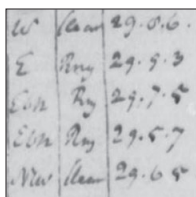 W Clear 29.8.6.
E Rny 29.9.3
EbN Ry 29.7.5
EbN Rny 29.5.7
NW Clear 29.6 5